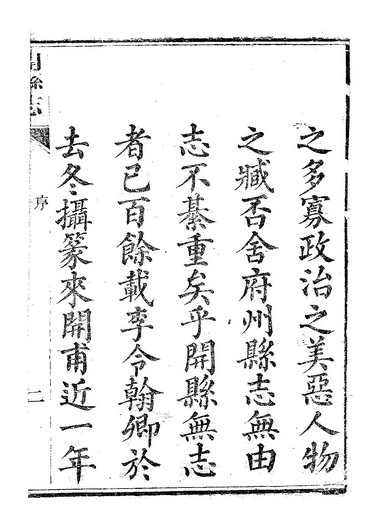 之多寡政治之美惡人物
之臧否舍府州縣志無由
志不綦重矣乎開縣無志
者已百餘載李令翰卿於
去冬攝篆來開甫近一年
序
二